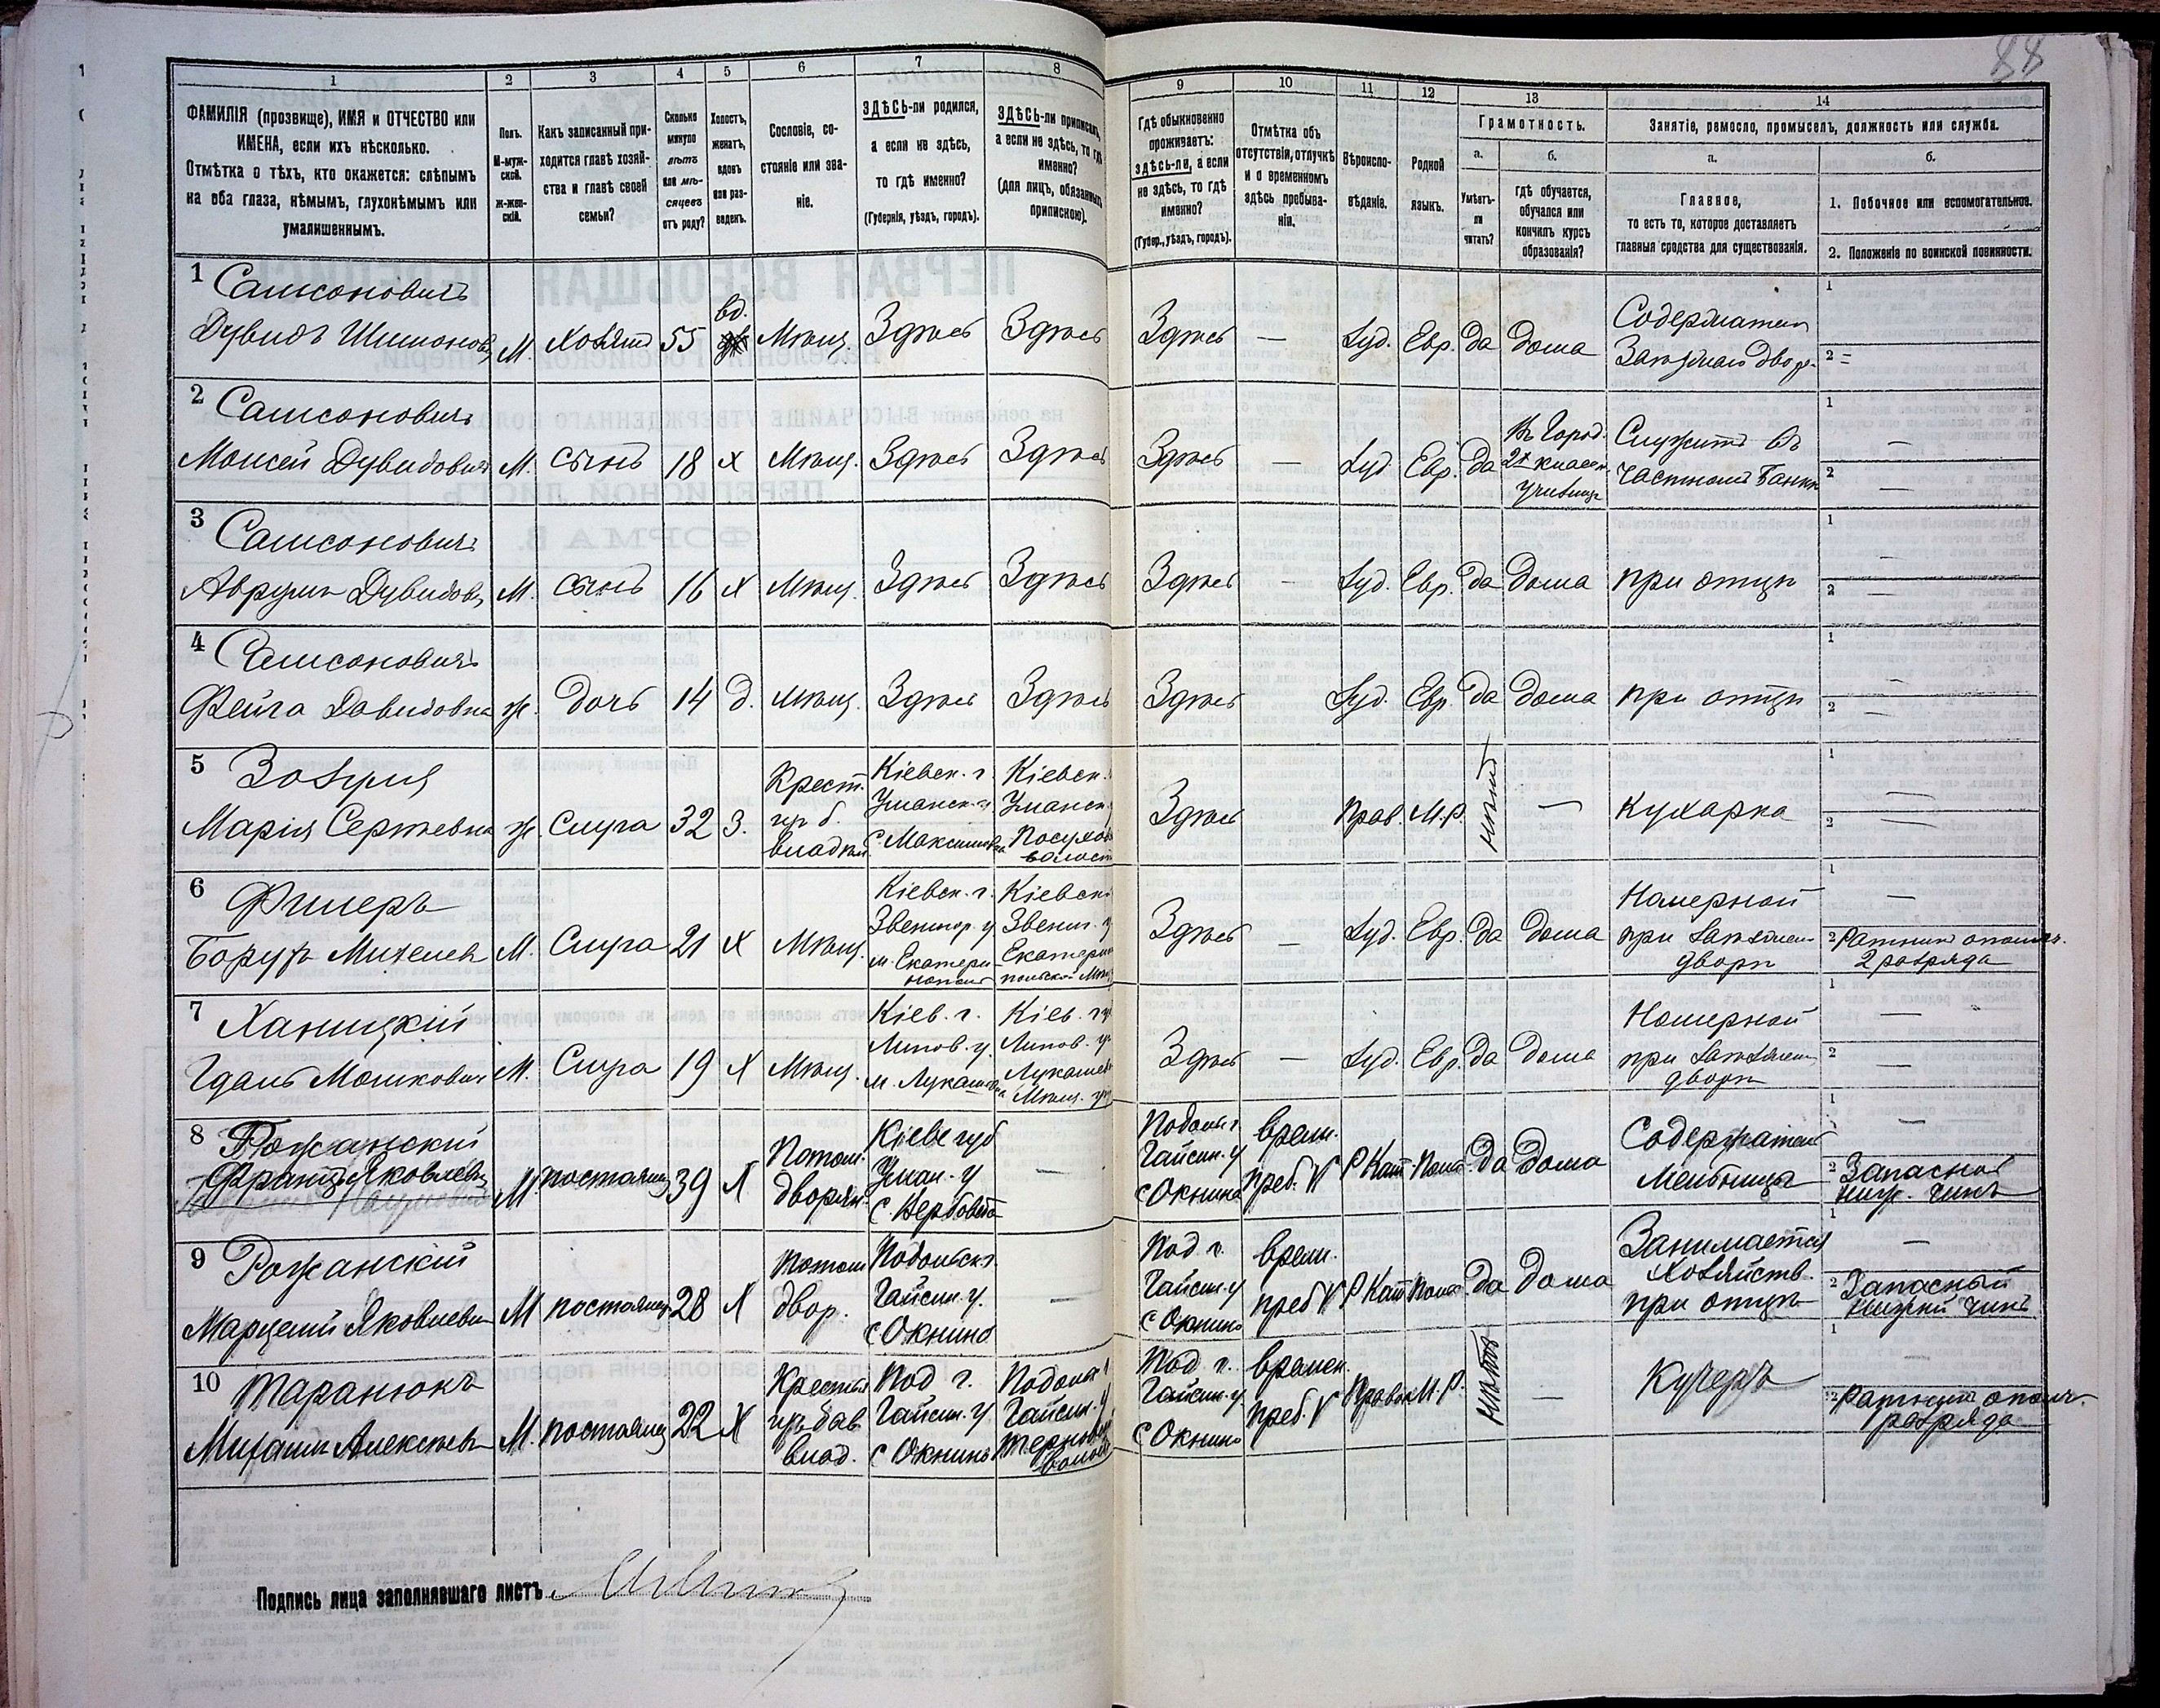 88
1
2
3
4
5
6
7
8
9
10
11
12
13
14
ФАМИЛІЯ (прозвище), ИМЯ и ОТЧЕСТВО или
ИМЕНА, если ихъ нѣсколько.
Отмѣтка о тѣхъ, кто окажется: слѣпымъ
на оба глаза, нѣмымъ, глухонѣмымъ или
умалишеннымъ.
Полъ.
М-муж-
ской.
ж-жен-
скій.
Какъ записанный при-
ходится главѣ хозяй-
ства и главѣ своей
семьи?
Сколько
минуло
лѣтъ
или мѣ-
сяцевъ
отъ роду?
Холостъ,
женатъ,
вдовъ
или раз-
веденъ.
Сословіе, со-
стояніе или зва-
ніе.
ЗДѢСЬ-ли родился,
а если не здѣсь,
то гдѣ именно?
(Губернія, уѣздъ, городъ).
ЗДѢСЬ-ли приписанъ,
а если не здѣсь, то гдѣ
именно?
(для лицъ, обязанныхъ
припискою).
Гдѣ обыкновенно
проживаетъ:
здѣсь-ли, а если
не здѣсь, то гдѣ
именно?
(Губер., уѣздъ, городъ).
Отмѣтка объ
отсутствіи, отлучкѣ
и о временномъ
здѣсь пребыва-
ніи.
Вѣроиспо-
вѣданіе.
Родной
языкъ.
Грамотность.
а.
Умѣетъ-
ли
читать?
б.
гдѣ обучается,
обучался или
кончилъ курсъ
образованія?
Занятіе, ремесло, промыселъ, должность или служба.
а.
Главное,
то есть то, которое доставляетъ
главныя средства для существованія.
б.
1. Побочное или вспомогательное.
2. Положеніе по воинской повинности.
1 Самсоновичъ
Дувидъ Шимонов. М. Хозяинъ 55 вд. Мѣщ. Здѣсь Здѣсь Здѣсь — Іуд. Евр. да дома
Содержатель
Заѣзжаго двор.
1
2 =
2 Самсоновичъ
Моисей Дувидович М. сынъ 18 х Мѣщ. Здѣсь Здѣсь Здѣсь — Іуд. Евр. да
Въ Город.
2х класн.
училищѣ
Служитъ въ
частномъ Банкѣ
1 —
2 —
3 Самсоновичъ
Аврумъ Дувидов. М. сынъ 16 х Мѣщ. Здѣсь Здѣсь Здѣсь — Іуд. Евр. да дома при отцѣ
1 —
2 —
4 Самсоновичъ
Фейга Давидовна ж. дочь 14 д. Мѣщ. Здѣсь Здѣсь Здѣсь Іуд. Евр. да дома при отцѣ
1 —
2 —
5 Зозуля
Марія Сергѣевна ж. Слуга 32 З.
Крест.
б.
владѣл.
Кіевск. г.
Уманск. у
с Максимовка
Кіевск.
Уманск.
Посухов
волост
Здѣсь Прав. М.Р. нѣтъ — Кухарка
1 —
2 —
6 Фишеръ
Борух Михелев М. Слуга 21 х Мѣщ.
Кіевск. г.
Звенигор. у
м. Екатери-
нополь
Кіевск.
Звениг. у
Екатери-
польской Мѣщ
Здѣсь — Іуд. Евр. да дома
Номерной
при заѣзжем
дворѣ
1 —
2 Ратникъ ополч.
2 разряда
7 Ханицкій
Гдаль Мошкович М. Слуга 19 х Мѣщ.
Кіев. г.
Липов. у.
м. Лукашовка
Кіев. г
Липов. у
Лукашев
Мѣщ. уп
Здѣсь — Іуд. Евр. да дома
Номерной
при заѣзжем
дворѣ
1 —
2 —
8 Рожанскій
Францъ Яковлев. М. постоялец 39 х
Потом.
дворян.
Кіевс губ
Уман. у
с Вербовата
—
Подоль г.
Гайсин. у
с Окнина
врем.
преб. V Р Кат. Поль. да дома
Содержатель
Мельницы
1 —
2 Запасной
ниж. чинъ
9 Рожанскій
Марцелій Яковлевич М постоялец 28 х
Потом
двор.
Подольск.
Гайсин. у.
с Окнино
—
Под г.
Гайсин. у
с Окнино
врем.
преб V Р Кат Поль да дома
Занимается
хозяйств.
при отцѣ
1 —
2 Запасный
нижній чинъ
10 Таранюкъ
Михаилъ Алексѣев М. постоялец 22 х
Крестья
бив
влад.
Под г.
Гайсин. у
с Окнино
Подоль г
Гайсин. у
Терновск
волос
Под г.
Гайсин. у
с Окнино
времен.
преб. V Правос М.Р. нѣтъ — Кучеръ
1 —
2 Ратникъ ополч.
разряда
Подпись лица заполнявшаго листъ